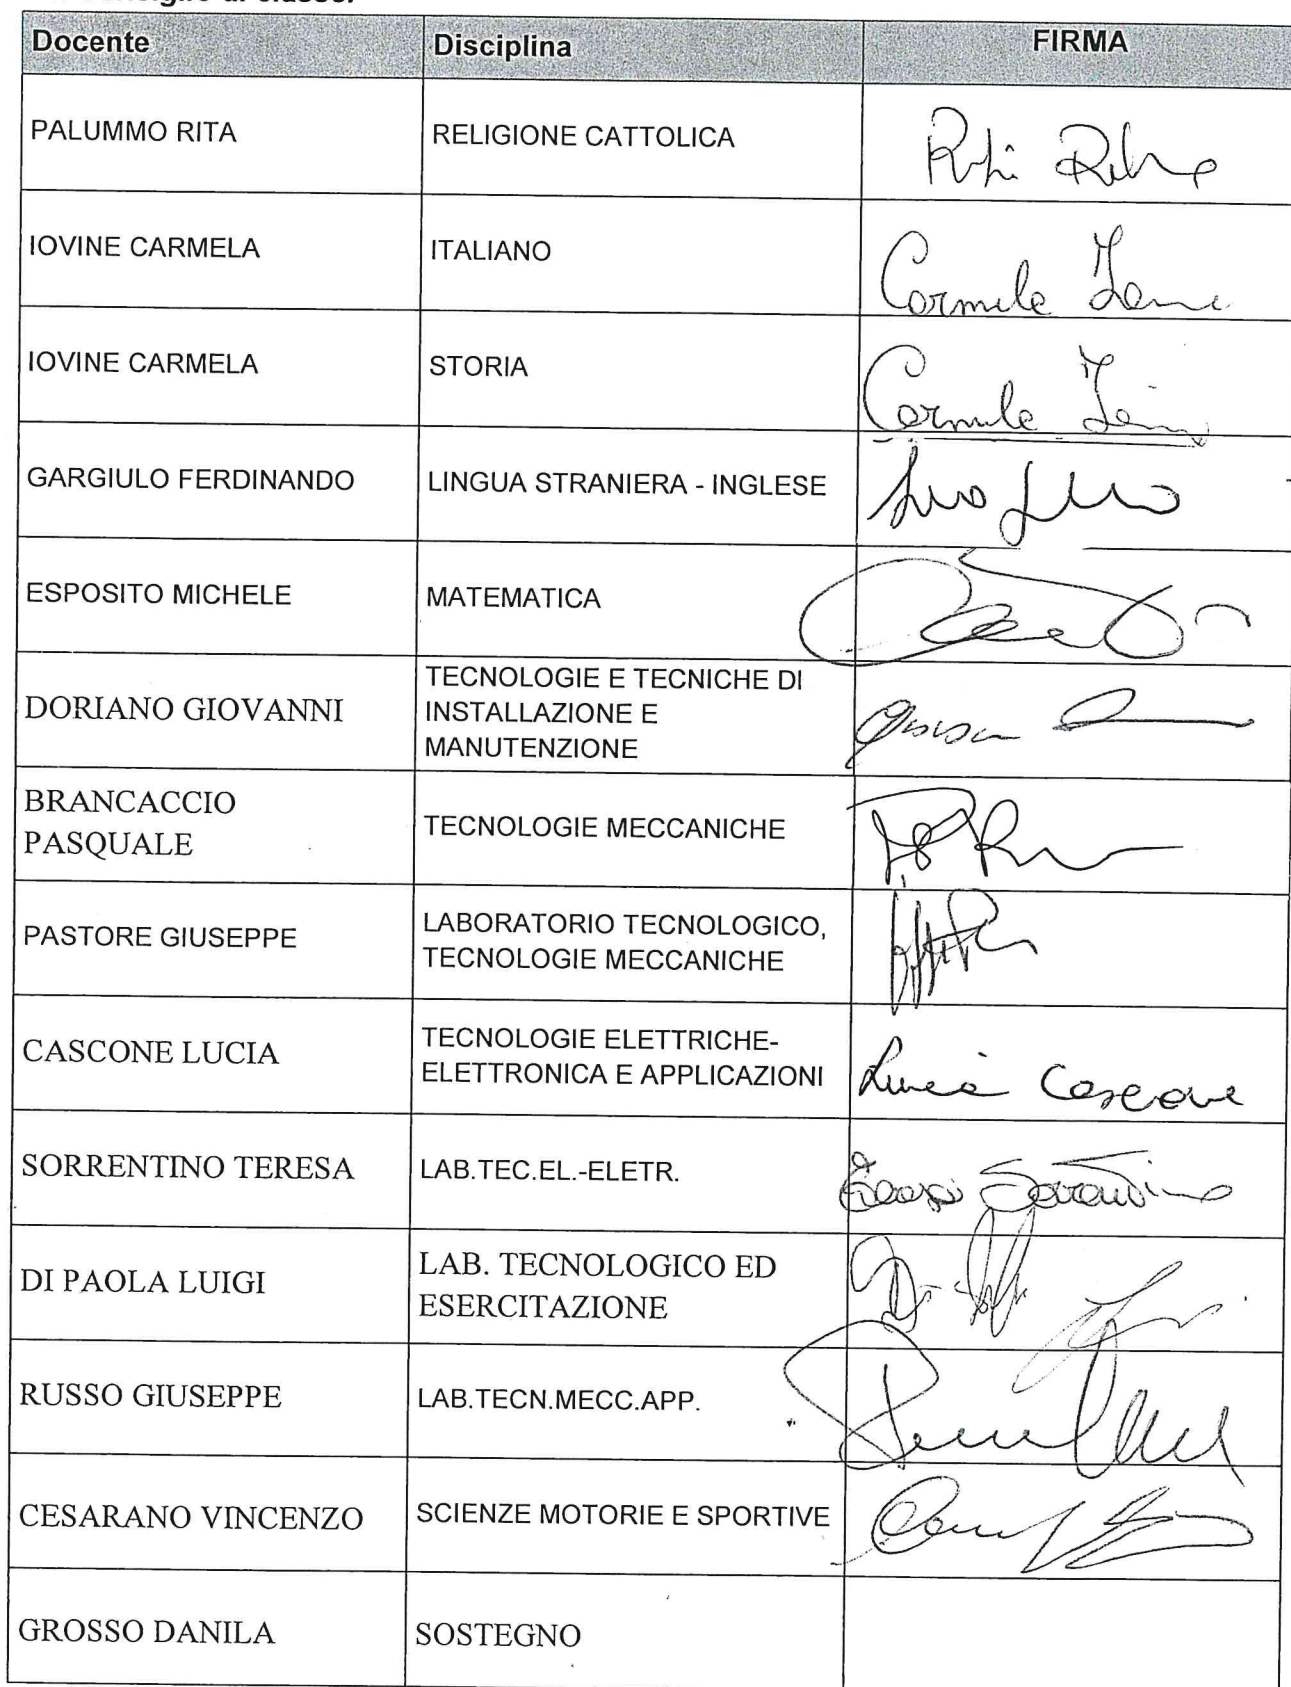 Docente Disciplina FIRMA
PALUMMO RITA RELIGIONE CATTOLICA
IOVINE CARMELA ITALIANO Carmela
IOVINE CARMELA STORIA Carmela
GARGIULO FERDINANDO LINGUA STRANIERA - INGLESE
ESPOSITO MICHELE MATEMATICA
DORIANO GIOVANNI TECNOLOGIE E TECNICHE DI
INSTALLAZIONE E
MANUTENZIONE
BRANCACCIO
PASQUALE TECNOLOGIE MECCANICHE
PASTORE GIUSEPPE LABORATORIO TECNOLOGICO,
TECNOLOGIE MECCANICHE
CASCONE LUCIA TECNOLOGIE ELETTRICHE-
ELETTRONICA E APPLICAZIONI Lucia Cascone
SORRENTINO TERESA LAB.TEC.EL.-ELETR. Sorrentino
DI PAOLA LUIGI LAB. TECNOLOGICO ED
ESERCITAZIONE
RUSSO GIUSEPPE LAB.TECN.MECC.APP.
CESARANO VINCENZO SCIENZE MOTORIE E SPORTIVE
GROSSO DANILA SOSTEGNO